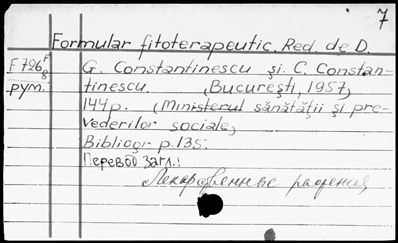 7
Formular fitoterapeutic. Red. de D.
F 796 F/8 G. Constantinescu şi C. Constan-
рум. tinescu. Bucureşti, 1957,
144 p. (Ministerul sănătăţii şi pre-
vederilor sociale)
Bibliogr p. 135.
Перевод загл.:
Лекарственные растения